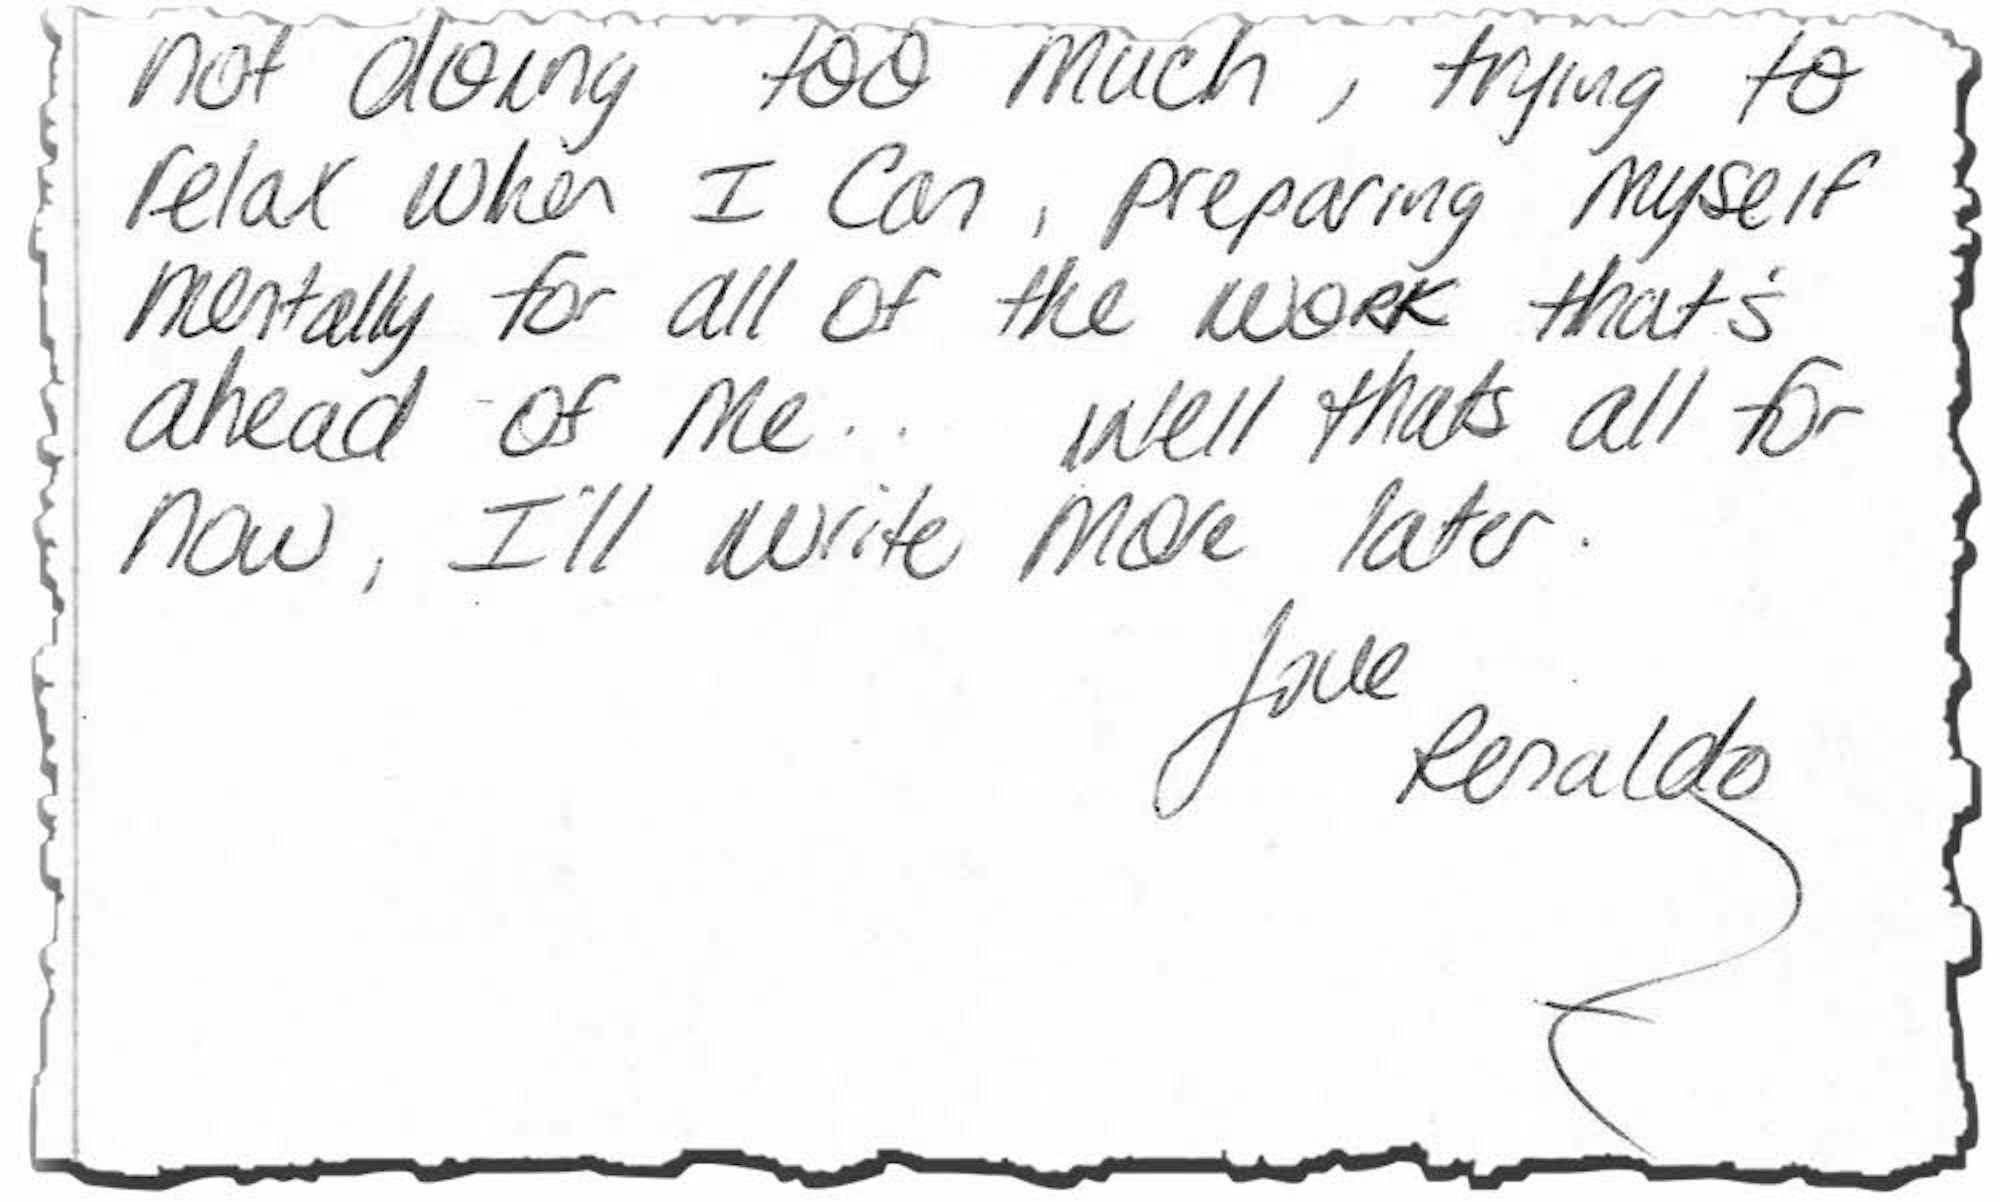 not doing too much, trying to
relax when I can, preparing myself
mentally for all of the work that's
ahead of me.. well thats all for
now, I'll write more later.
Love
Renaldo